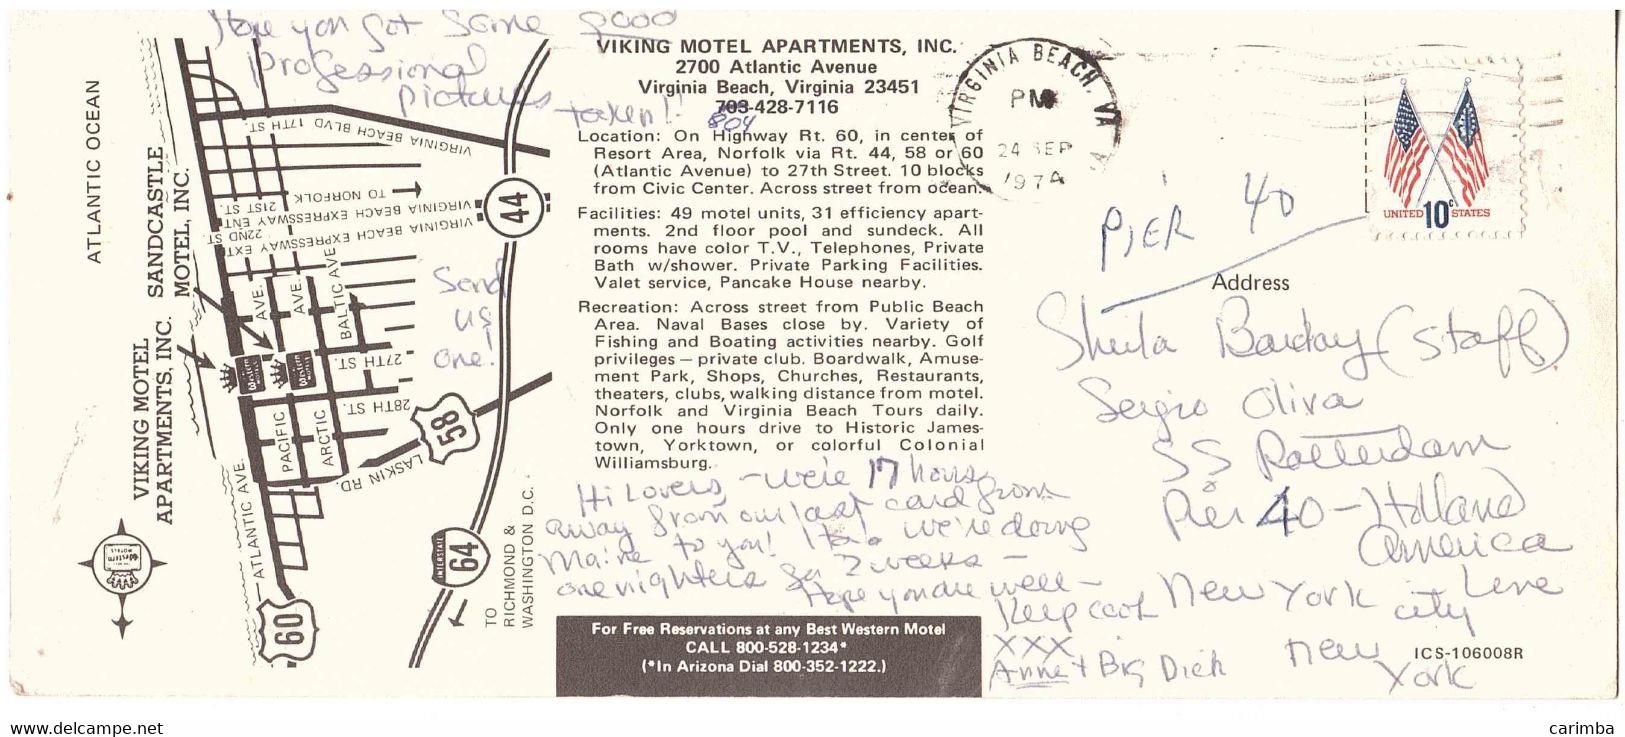 Hope you got some good
professional
pictures taken!!
Send
us
one!
ATLANTIC OCEAN
VIKING MOTEL
APARTMENTS, INC.
SANDCASTLE
MOTEL, INC.
VIRGINIA BEACH BLVD 17TH ST.
TO NORFOLK
21ST ST.
VIRGINIA BEACH EXPRESSWAY ENT
22ND ST.
VIRGINIA BEACH EXPRESSWAY EXT
AVE.
AVE.
BALTIC AVE
27TH ST.
28TH ST.
PACIFIC
ARCTIC
LASKIN RD.
ATLANTIC AVE.
44
58
60
INTERSTATE
64
TO
RICHMOND &
WASHINGTON D.C.
Best
Western
MOTELS
VIKING MOTEL APARTMENTS, INC.
2700 Atlantic Avenue
Virginia Beach, Virginia 23451
703-428-7116
804
Location: On Highway Rt. 60, in center of
Resort Area, Norfolk via Rt. 44, 58 or 60
(Atlantic Avenue) to 27th Street. 10 blocks
from Civic Center. Across street from ocean.
Facilities: 49 motel units, 31 efficiency apart-
ments. 2nd floor pool and sundeck. All
rooms have color T.V., Telephones, Private
Bath w/shower. Private Parking Facilities.
Valet service, Pancake House nearby.
Recreation: Across street from Public Beach
Area. Naval Bases close by. Variety of
Fishing and Boating activities nearby. Golf
privileges — private club. Boardwalk, Amuse-
ment Park, Shops, Churches, Restaurants,
theaters, clubs, walking distance from motel.
Norfolk and Virginia Beach Tours daily.
Only one hours drive to Historic James-
town, Yorktown, or colorful Colonial
Williamsburg.
Hi Lovers, - we're 17 hours
away from our last card from
Maine to you! We're doing
one nighters for 2 weeks -
Hope you are well -
Keep cool
XXX
Anne + Big Dick
For Free Reservations at any Best Western Motel
CALL 800-528-1234*
(*In Arizona Dial 800-352-1222.)
VIRGINIA BEACH, VA
PM
24 SEP
1974
UNITED 10c STATES
PIER 40
Address
Sheila Barclay (Staff)
Sergio Oliva
SS Rotterdam
Pier 40 - Holland
America
Line
New York city
New
York
ICS-106008R
carimba